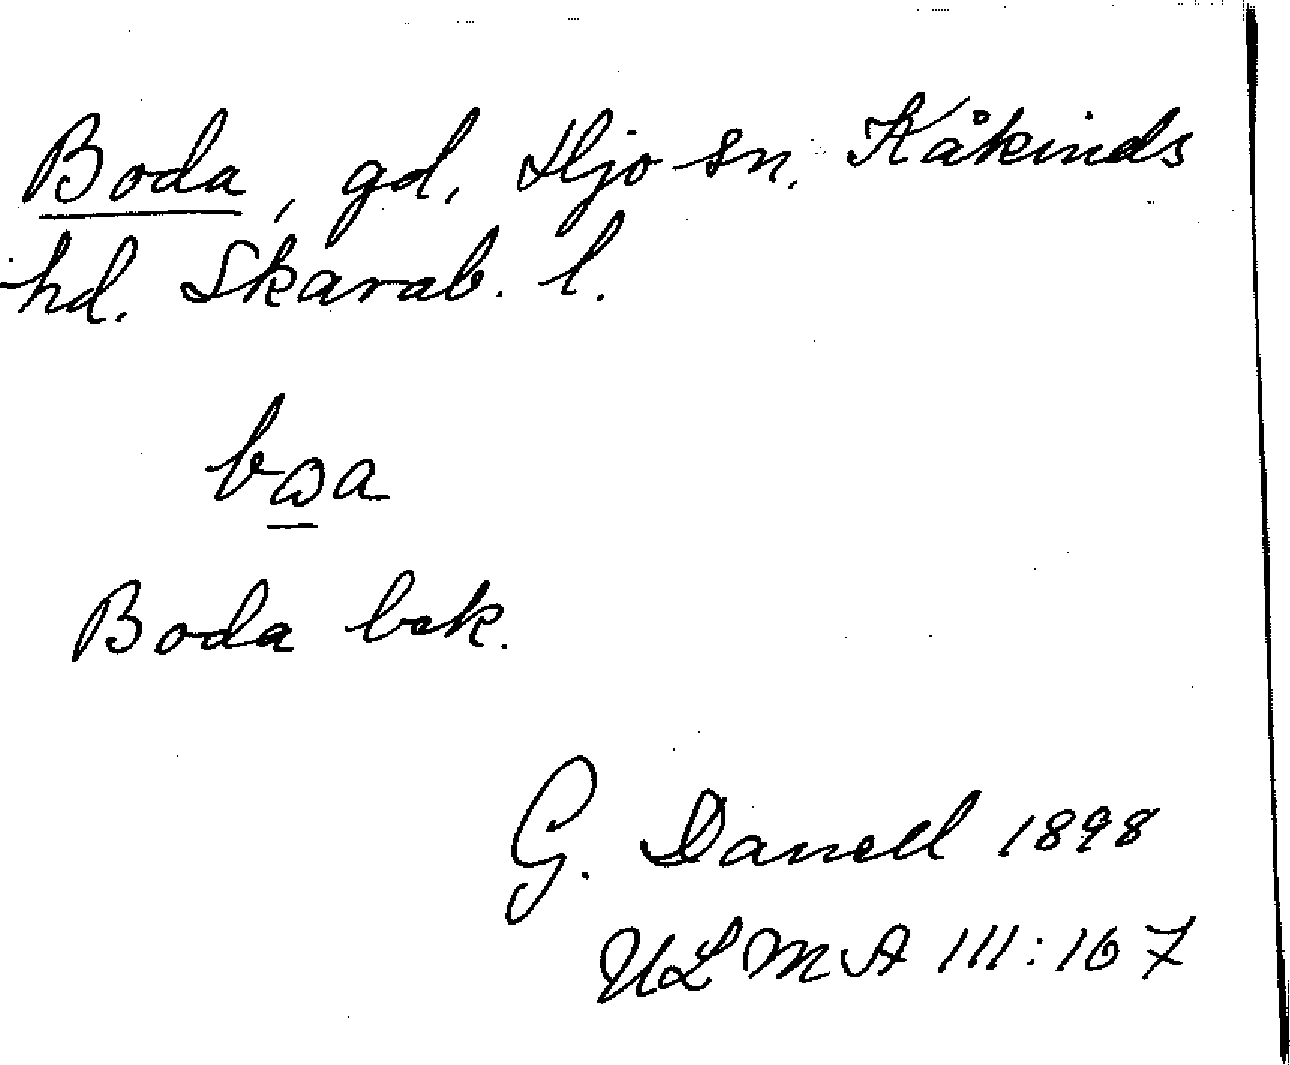 Boda, gd. Hjo sn. Kåkinds
hd. Skarab. l.
Boda bek.
G. Danell 1898
ULMA III:167